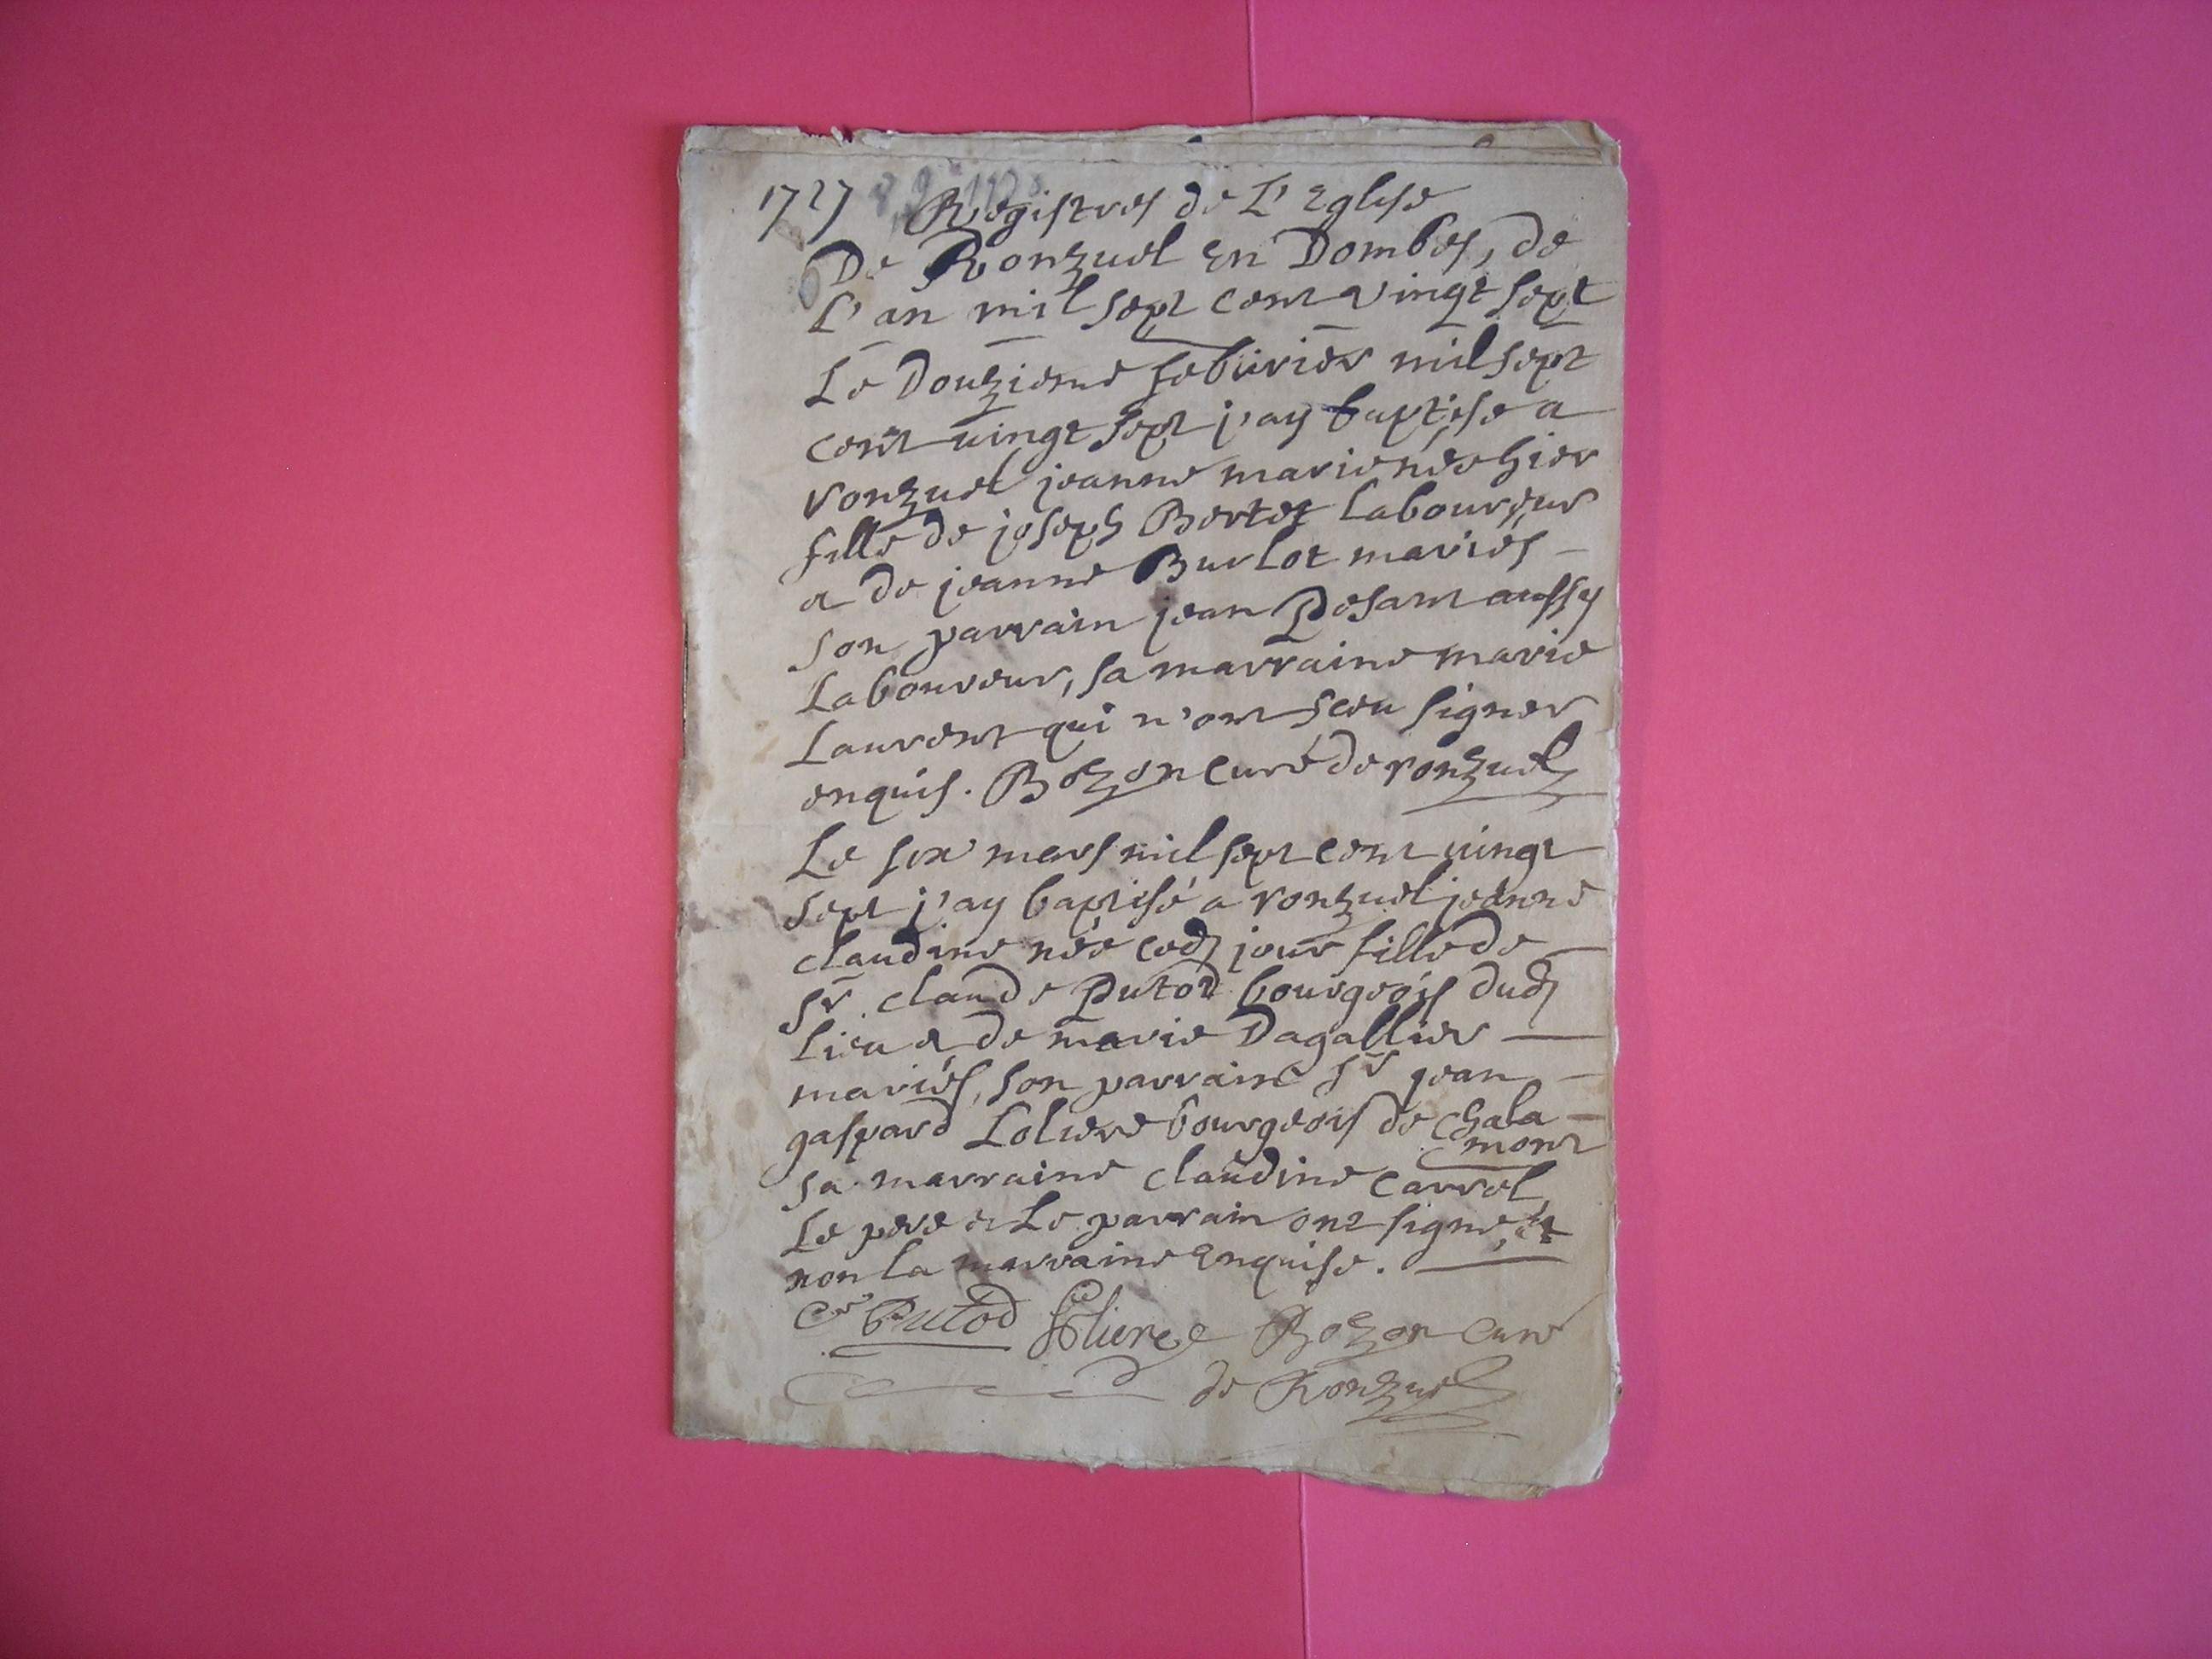 1727 Registres de L'Eglise
De Ronzuel En Dombes, de
L'an mil sept cent vingt sept
Le Douzieme febvrier mil sept
cent vingt sept j'ay baptise a
ronzuel jeanne marie née hier
fille de joseph Bertet Laboureur
et de jeanne Burlot mariés
son parrain jean Pesant aussy
Laboureur, sa marraine marie
Laurent qui n'ont sceu signer
enquis. Bozon curé de ronzuel
Le six mars mil sept cent vingt
sept j'ay baptisé a ronzuel jeanne
claudine née cedj jour fille de
Sr. claude Putod bourgeois dudj
Lieu et de marie Dagallier
mariés, son parrain Sr jean
gaspard Loliere bourgeois de Chala
mont
sa marraine claudine Carrel,
Le pere et Le parrain ont signe, et
non la marraine Enquise.
Putod Loliere Bozon Curé
de Ronzuel